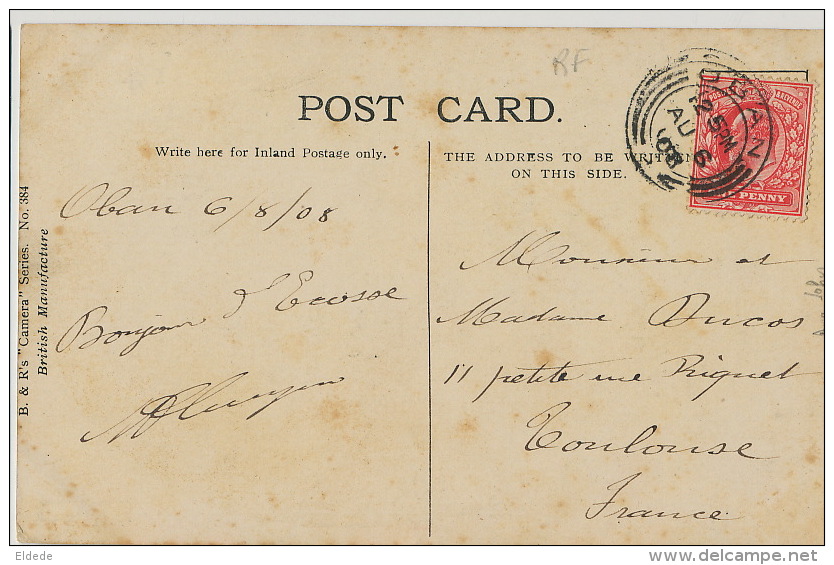 RF
POST CARD.
Write here for Inland Postage only.
THE ADDRESS TO BE WRITTEN
ON THIS SIDE.
OBAN
2 15PM
AU 6
08
PENNY
B. & R's "Camera" Series. No. 384
British Manufacture
Oban 6/8/08
Bonjour d'Ecosse
Monsieur et
Madame Ducos
11 petite rue Riquet
Toulouse
France
Eldede
delcampe.net